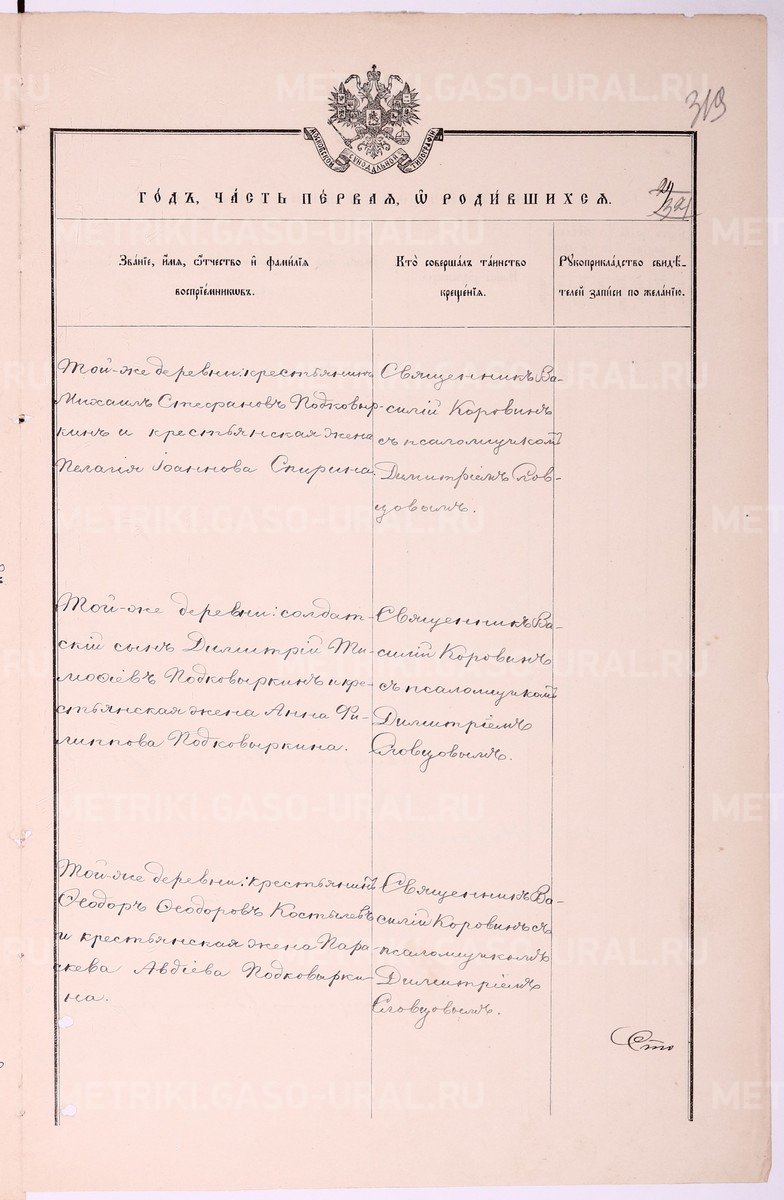 METRIKI.GASO-URAL.RU
319
МОСКОВСКОЙ СѴНОДАЛЬНОЙ ТИПОГРАФІИ
ГО́ДЪ, ЧА́СТЬ ПЕ́РВАЯ, Ѡ҆ РОДИ́ВШИХСЯ.
Зва́нїе, и҆́мя, ѻ҆́тчество и҆ фами́лїя
воспрїе́мникѡвъ.
Кто̀ соверша́лъ та́инство
креще́нїя.
Рꙋкоприкла́дство свидѣ́-
телей за́писи по жела́нїю.
Той-же деревни: крестьянинъ
Михаилъ Стефановъ Подковыр-
кинъ и крестьянская жена
Пелагія Іоаннова Спирина.
Священникъ Ва-
силій Коровинъ
съ псаломщикомъ
Димитріемъ Слов-
цовымъ.
Той-же деревни: солдат-
скій сынъ Димитрій Ти-
моѳіевъ Подковыркинъ и кре-
стьянская жена Анна Фи-
липпова Подковыркина.
Священникъ Ва-
силій Коровинъ
съ псаломщикомъ
Димитріемъ
Словцовымъ.
Той-же деревни: крестьянинъ
Ѳеодоръ Ѳеодоровъ Костылевъ
и крестьянская жена Пара-
скева Авдіева Подковырки-
на.
Священникъ Ва-
силій Коровинъ съ
псаломщикомъ
Димитріемъ
Словцовымъ.
Сто